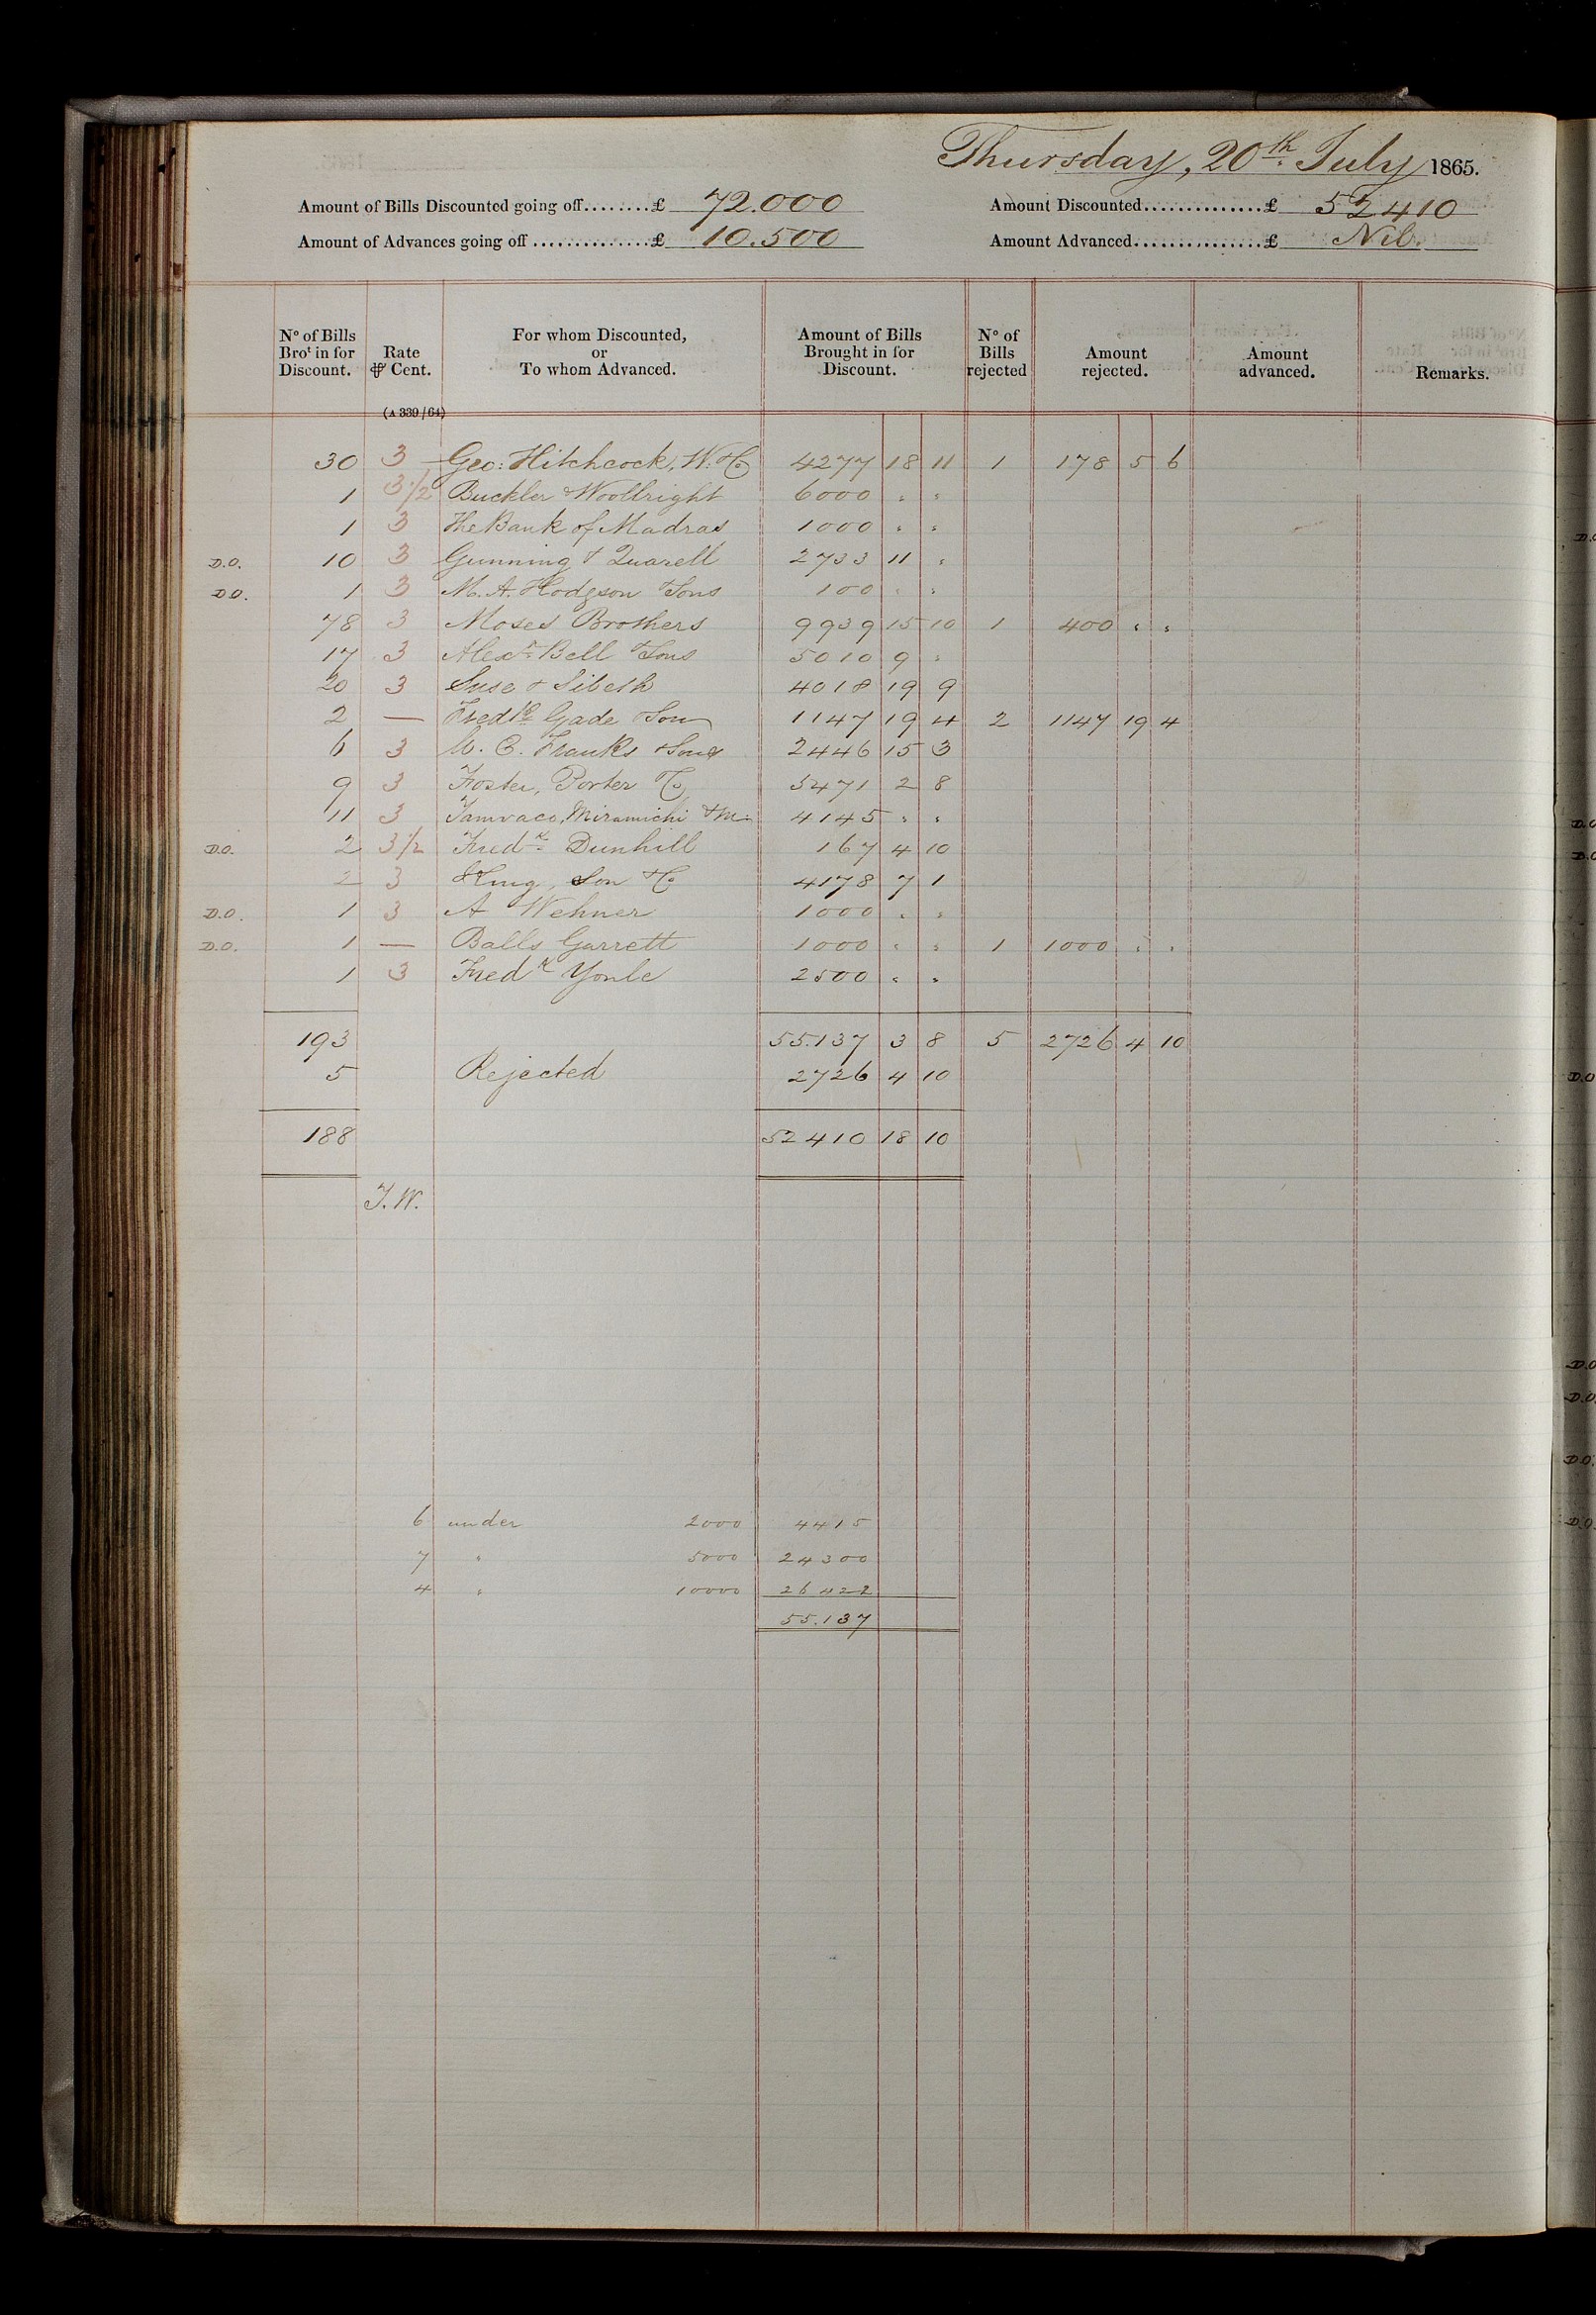 Thursday, 20th July 1865.
Amount of Bills Discounted going off........£ 72.000 Amount Discounted..............£ 52410
Amount of Advances going off..............£ 10.500 Amount Advanced................£ Nil.
No of Bills Brot in for Discount. Rate ⅌ Cent. For whom Discounted, or To whom Advanced. Amount of Bills Brought in for Discount. No of Bills rejected Amount rejected. Amount advanced. Remarks.
(A 339/64)
30 3 Geo: Hitchcock, W. & Co 4277 18 11 1 178 5 6
1 3 1/2 Buckler & Woolbright 6000 " "
1 3 The Bank of Madras 1000 " "
D.O. 10 3 Gunning & Quarell 2733 11 "
D.O. 1 3 M. A. Hodgson & Sons 100 " "
78 3 Moses Brothers 9939 15 10 1 400 " "
17 3 Alexr Bell & Sons 5010 9 "
20 3 Suse & Sibeth 4018 19 9
2 — Fredk Gade & Son 1147 19 4 2 1147 19 4
6 3 M. C. Franks & Sons 2446 15 3
9 3 Foster, Porter & Co 5471 2 8
11 3 Tamvaco, Miramichi & M 4145 " "
D.O. 2 3 1/2 Fredk Dunhill 167 4 10
2 3 King, Son & Co 4178 7 1
D.O. 1 3 A Wehner 1000 " "
D.O. 1 — Balls Garrett 1000 " " 1 1000 " "
1 3 Fredk Youle 2500 " "
193 55.137 3 8 5 2726 4 10
5 Rejected 2726 4 10
188 52410 18 10
T.W.
6 under 2000 4415
7 " 5000 24300
4 " 10000 26422
55.137